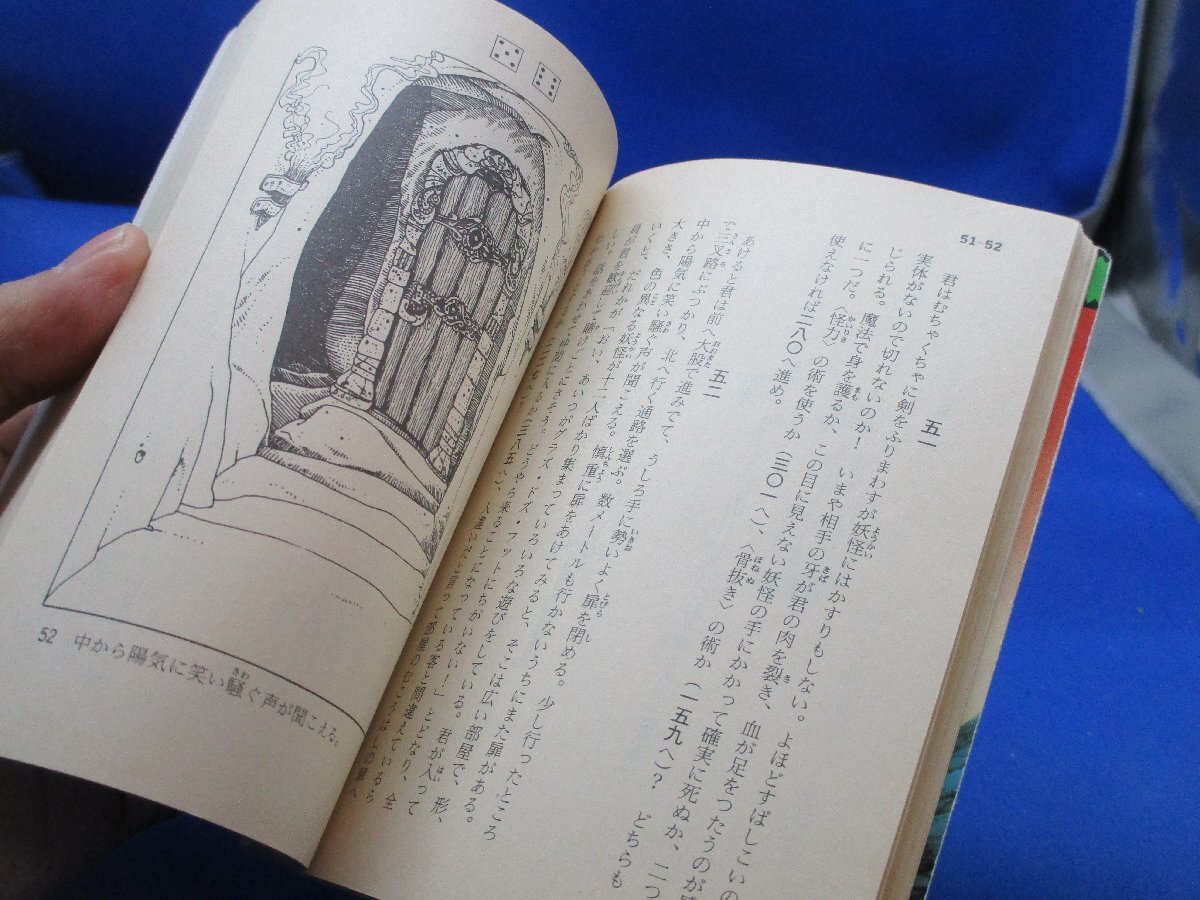 51-52
五一
君はむちゃくちゃに剣をふりまわすが妖怪にはかすりもしない。よほどすばしこいの
実体がないので切れないのか！　いまや相手の牙が君の肉を裂き、血が足をつたうのが
じられる。魔法で身を護るか、この目に見えない妖怪の手にかかって確実に死ぬか、二つ
に一つだ。〈怪力〉の術を使うか（三〇一へ）、〈骨抜き〉の術か（一五九へ）？　どちらも
使えなければ二八〇へ進め。
五二
あけると君は前へ大股で進みでて、うしろ手に勢いよく扉を閉める。少し行ったところ
で三叉路にぶつかり、北へ行く通路を選ぶ。数メートルも行かないうちにまた扉がある。
中から陽気に笑い騒ぐ声が聞こえる。慎重に扉をあけてみると、そこは広い部屋で、形、
大きさ、色の異なる妖怪が十二人ばかり集まっていろいろな遊びをしている。君が入って
いくと、だれかが「おい、あいつがグラズ・ドズ・フットにちがいない！」とどなり、全
52 中から陽気に笑い騒ぐ声が聞こえる。